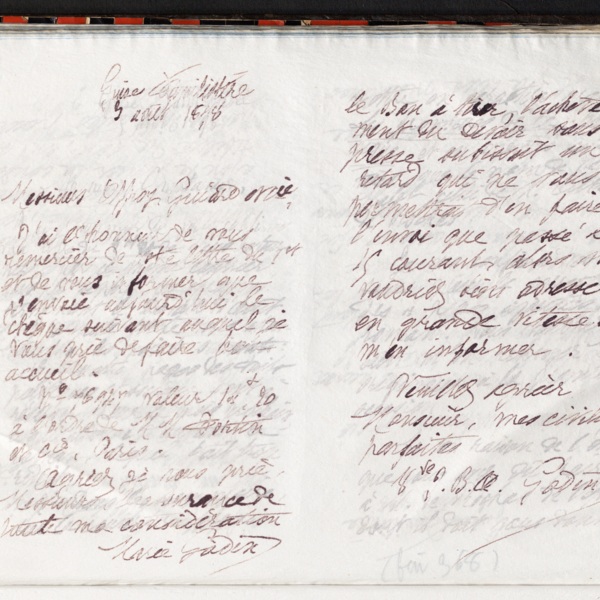 Guise Familistère
5 avril 1898
Messieurs Offroy Guiard et Cie
J'ai l'honneur de vous
remercier de votre lettre du 1er
et de vous informer que
j'envoie aujourd'hui le
chèque suivant auquel je
vous prie de faire bon
accueil.
valeur
à l'ordre de M M
et Cie, Paris.
Agréez je vous prie,
Messieurs, l'assurance de
toute ma considération
Marie Godin
le Bon à tirer, l'achève
ment du Devoir sous
presse subissant un
retard qui ne nous
permettra d'en faire
l'envoi que passé le
15 courant alors
voudriez
en grande vitesse.
m'en informer.
Veuillez agréer
Monsieur, mes civilités
parfaites
Vve J. B. A. Godin
(fin 366)